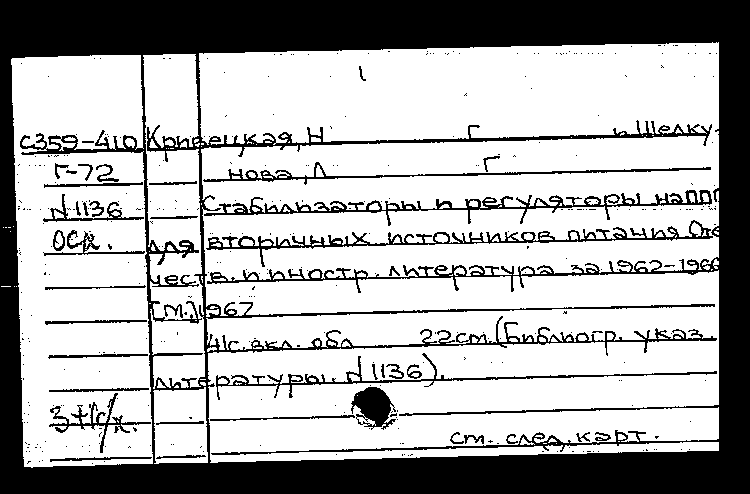 С359-410 Кривецкая, Н Г и Шелку-
Г-72 нова, Л Г
N1136 Стабилизаторы и регуляторы напр
ОСК. для вторичных источников питания Оте
честв. и иностр. литература за 1962-1966
[М.] 1967
41с. вкл. обл 22см. (Библиогр. указ.
литературы. N1136).
см. след. карт.